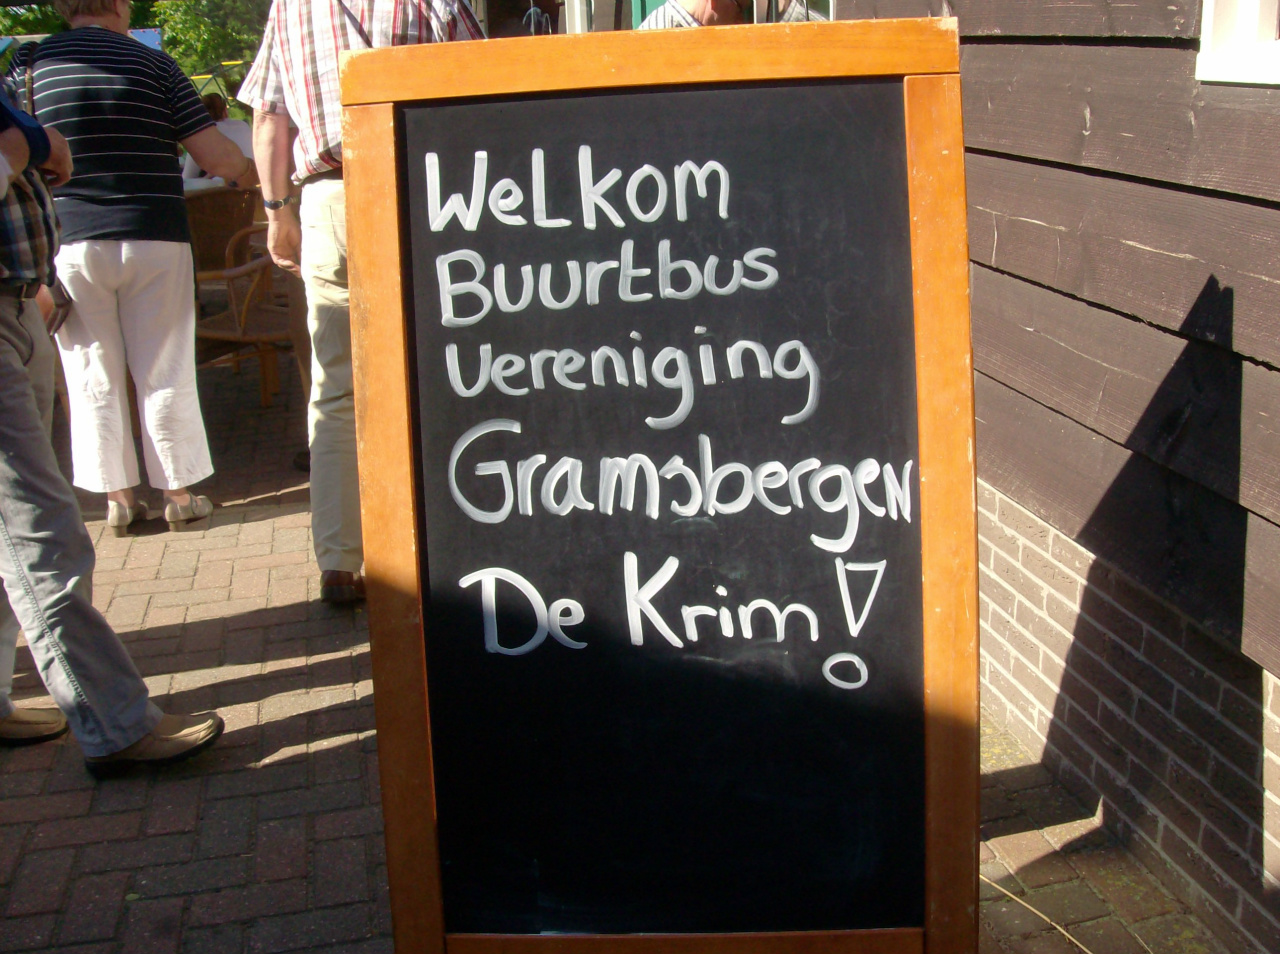 Welkom
Buurtbus
Vereniging
Gramsbergen
De Krim!